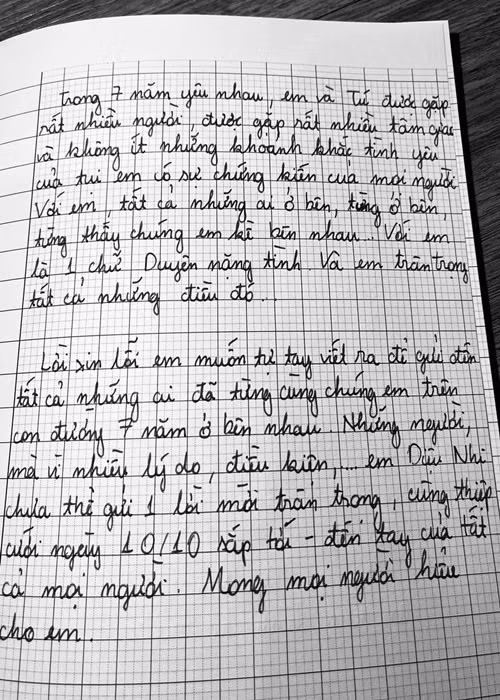 Trong 7 năm yêu nhau, em và Tú được gặp
rất nhiều người, được gặp rất nhiều tâm giao
và không ít những khoảnh khắc tình yêu
của tụi em có sự chứng kiến của mọi người.
Với em, tất cả những ai ở bên, từng ở bên,
từng thấy chúng em kề bên nhau.. Với em
là 1 chữ Duyên nặng tình. Và em trân trọng
tất cả những điều đó...
Lời xin lỗi em muốn tự tay viết ra để gửi đến
tất cả những ai đã từng cùng chúng em trên
con đường 7 năm ở bên nhau. Những người,
mà vì nhiều lý do, điều kiện,... em Diệu Nhi
chưa thể gửi 1 lời mời trân trọng, cùng thiệp
cưới ngày 10/10 sắp tới - đến tay của tất
cả mọi người. Mong mọi người hiểu
cho em.